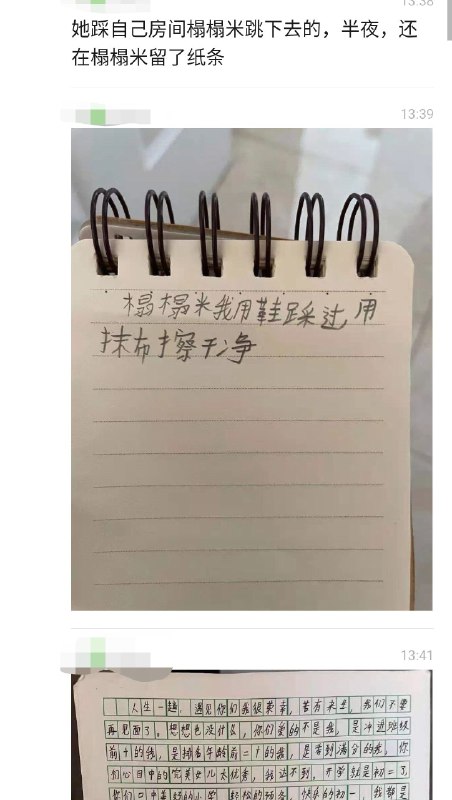 13:38
她踩自己房间榻榻米跳下去的，半夜，还
在榻榻米留了纸条
13:39
榻榻米我用鞋踩过,用
抹布擦干净
13:41
人生一趟，遇见你们我很荣幸，若有来生，我们不要
再见面了。想想也没什么，你们爱的不是我，是冲进班级
前十的我，是排名年龄前二十的我，是考到满分的我，你
们心目中的完美女儿太优秀，我达不到，开学就是初二了，